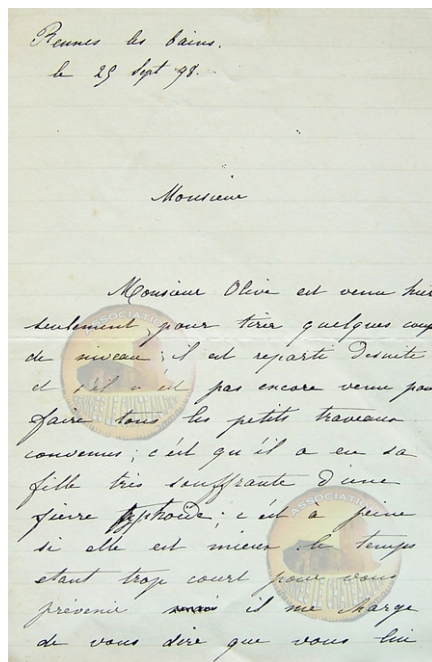 Rennes les bains.
le 29 Sept 98.
Monsieur
Monsieur Olive est venu hier
seulement, pour tirer quelques coup
de niveau; il est reparti desuite
et s'il n'est pas encore venu pou
faire tous les petits traveaux
convenus; c'est qu'il a eu sa
fille très souffrante d'une
fievre typhoïde; c'est à peine
si elle est mieux. le temps
etant trop court pour vous
prévenir il me charge
de vous dire que vous lui
ASSOCIATION
RENNES LE CHATEAU.DOC
ASSOCIATION
RENNES LE CHATEAU.DOC